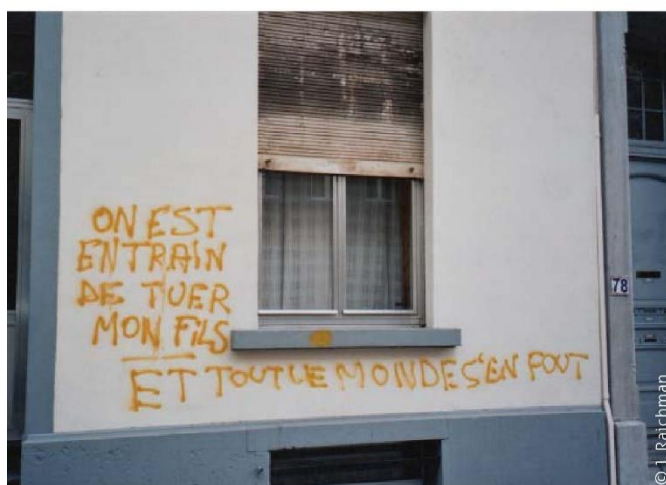 ON EST
EN TRAIN
DE TUER
MON FILS
ET TOUT LE MONDE S'EN FOUT
78
© J. Raichman